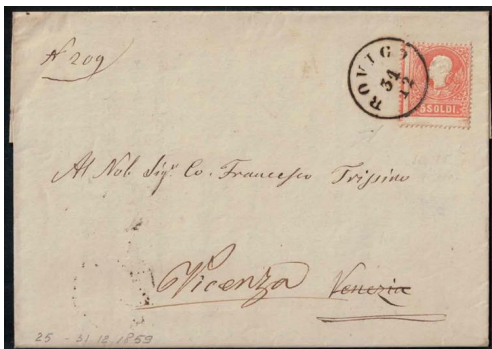 N 209
ROVIGO
31
12
5 SOLDI.
Al Nob. Sigr. Co. Francesco Trissino
Vicenza Venezia
25 - 31 12 1859